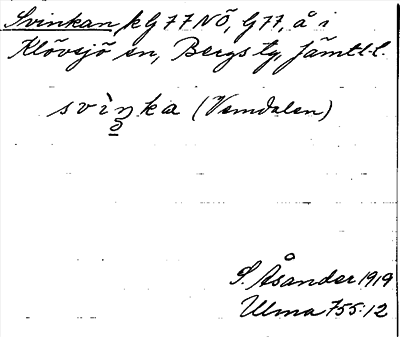 Svinkan, k G 77 NÖ, G 77, å i
Klövsjö sn, Bergs tg, Jämtl. l.
svìŋka (Vemdalen)
S. Åsander 1919
Ulma 755:12